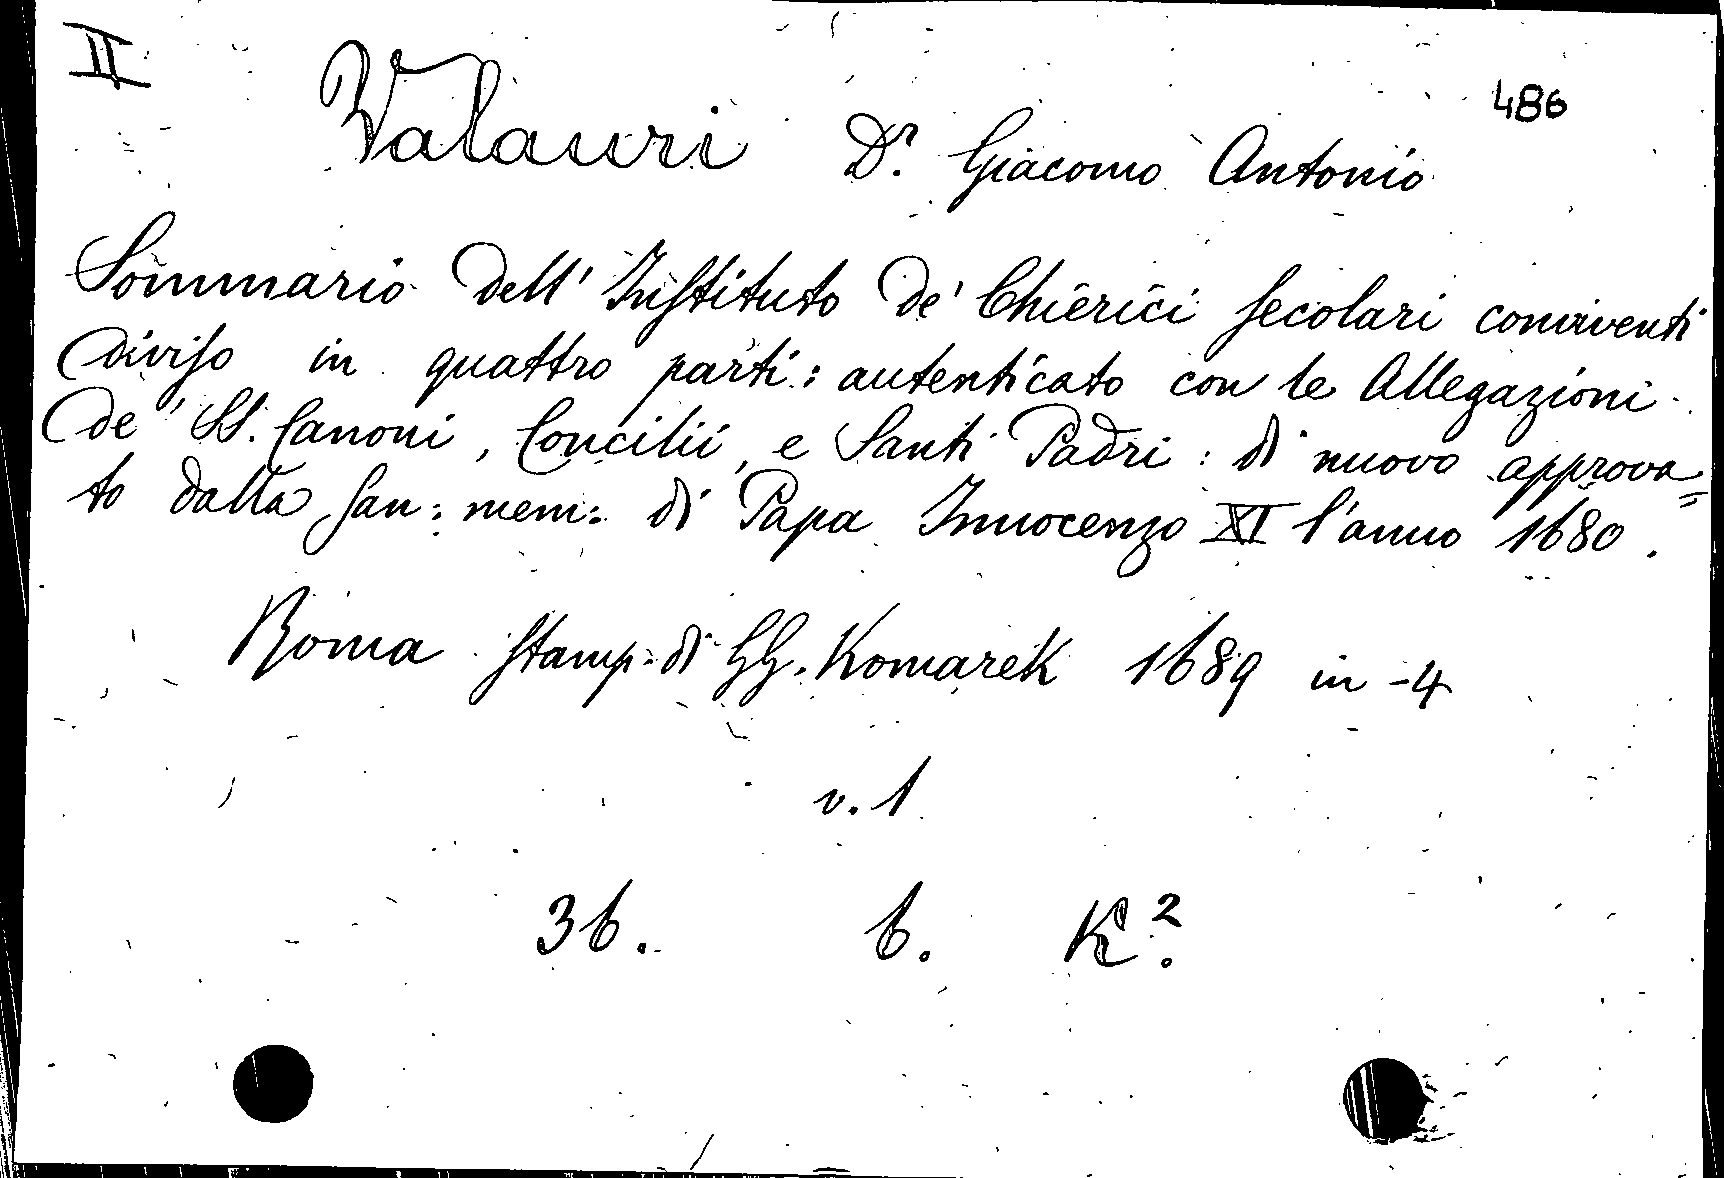 II
486
Valauri Dr. Giacomo Antonio
Sommario dell' Instituto de' Chierici secolari conviventi
diviso in quattro parti: autenticato con le Allegazioni
de' SS. Canoni, Concilii, e Santi Padri: di nuovo approva=
to dalla san: mem: di Papa Innocenzo XI l'anno 1680.
Roma stamp. di GG. Komarek 1689 in-4
v. 1
36. 6. K2.